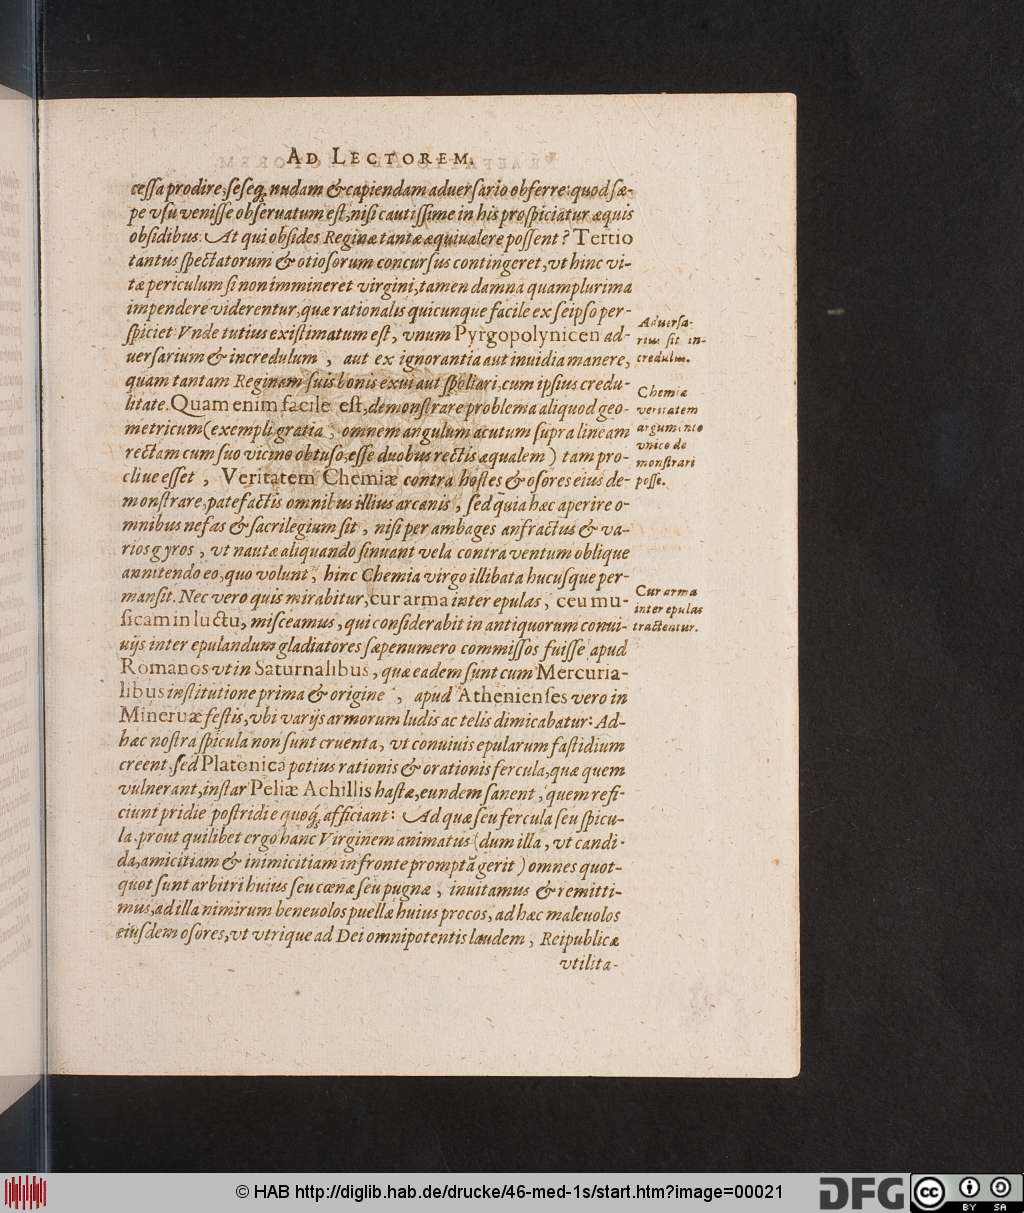 AD LECTOREM.
cessa prodire, seseq́; nudam & capiendam aduersario obferre: quod sæ-
pe vsu venisse obseruatum est, nisi cautissime in his prospiciatur æquis
obsidibus. At qui obsides Reginæ tantæ æquiualere possent? Tertio
tantus spectatorum & otiosorum concursus contingeret, vt hinc vi-
tæ periculum si non immineret virgini, tamen damna quamplurima
impendere viderentur, quæ rationalis quicunque facile ex seipso per-
spiciet. Vnde tutius existimatum est, vnum Pyrgopolynicen ad-
uersarium & incredulum, aut ex ignorantia aut inuidia manere,
quam tantam Reginam suis bonis exui aut spoliari, cum ipsius credu-
litate. Quam enim facile est, demonstrare problema aliquod geo-
metricum (exempli gratia, omnem angulum acutum supra lineam
rectam cum suo vicino obtuso, esse duobus rectis æqualem) tam pro-
cliue esset, Veritatem Chemiæ contra hostes & osores eius de-
monstrare, patefactis omnibus illius arcanis, sed quia hæc aperire o-
mnibus nefas & sacrilegium sit, nisi per ambages anfractus & va-
rios gyros, vt nautæ aliquando sinuant vela contra ventum oblique
annitendo eo, quo volunt, hinc Chemia virgo illibata hucusque per-
mansit. Nec vero quis mirabitur, cur arma inter epulas, ceu mu-
sicam in luctu, misceamus, qui considerabit in antiquorum conui-
uijs inter epulandum gladiatores sæpenumero commissos fuisse apud
Romanos vt in Saturnalibus, quæ eadem sunt cum Mercuria-
libus institutione prima & origine, apud Athenienses vero in
Mineruæ festis, vbi varijs armorum ludis ac telis dimicabatur: Ad-
hæc nostra spicula non sunt cruenta, vt conuiuis epularum fastidium
creent, sed Platonica potius rationis & orationis fercula, quæ quem
vulnerant, instar Peliæ Achillis hastæ, eundem sanent, quem refi-
ciunt pridie postridie quoq́; afficiant: Ad quæ seu fercula seu spicu-
la, prout quilibet ergo hanc Virginem animatus (dum illa, vt candi-
da, amicitiam & inimicitiam in fronte promptā gerit) omnes quot-
quot sunt arbitri huius seu cœnæ seu pugnæ, inuitamus & remitti-
mus, ad illa nimirum beneuolos puellæ huius procos, ad hæc maleuolos
eiusdem osores, vt vtrique ad Dei omnipotentis laudem, Reipublicæ
vtilita-
Aduersa-
rius sit in-
credulus.
Chemiæ
veritatem
argumento
vnico de
monstrari
posse.
Cur arma
inter epulas
tractentur.
© HAB http://diglib.hab.de/drucke/46-med-1s/start.htm?image=00021
DFG
cc BY SA